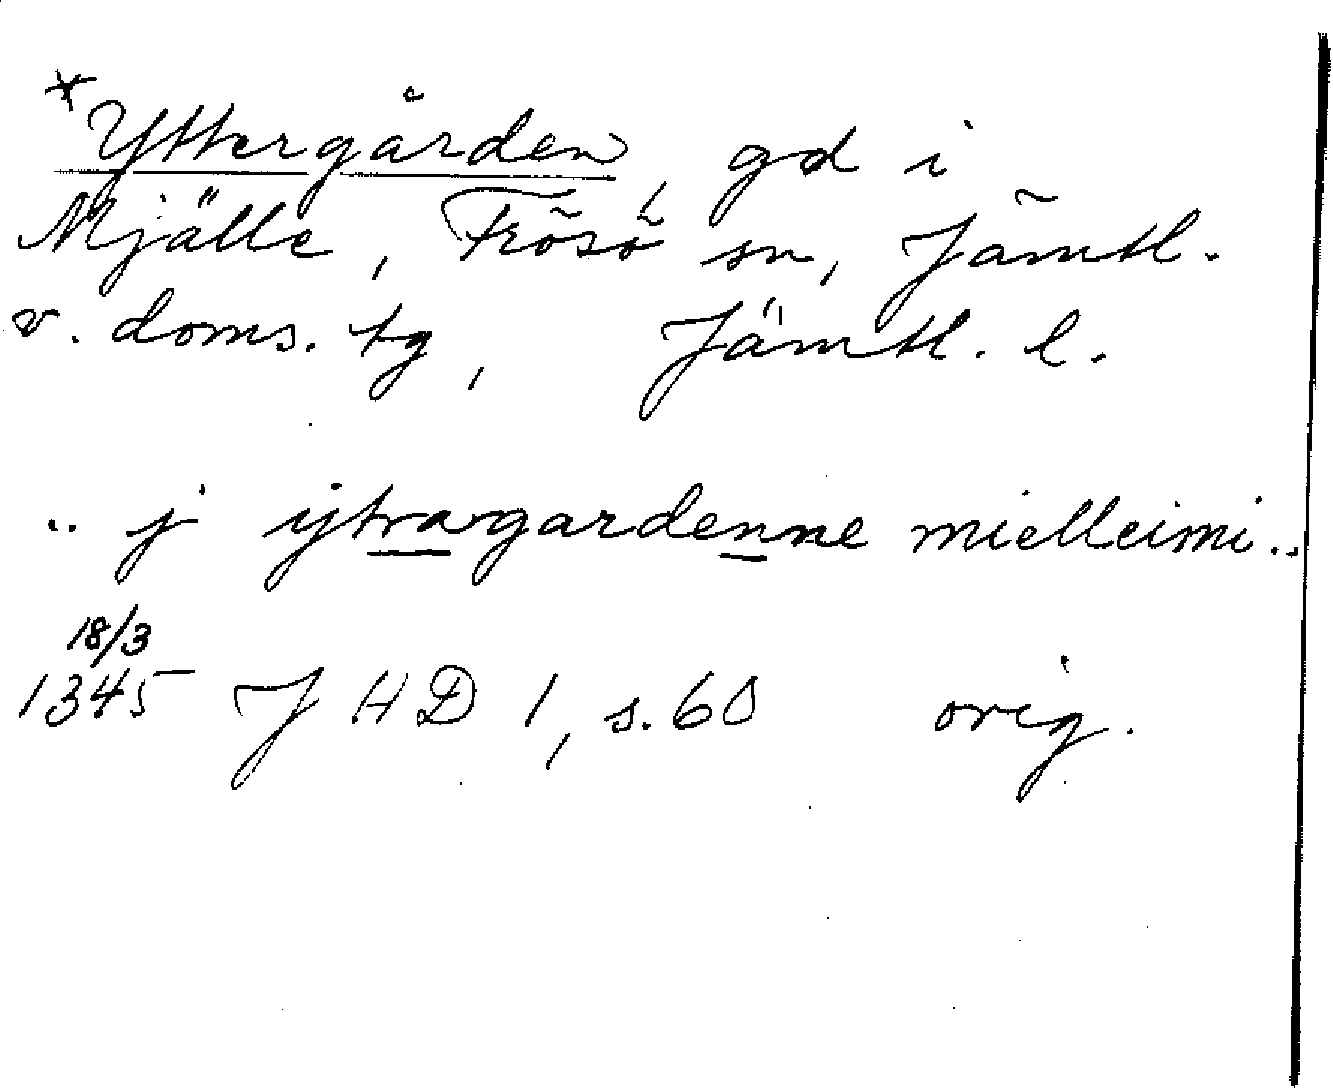 *Yttergården, gd i
Mjälle, Frösö sn, Jämtl.
v. doms. tg, Jämtl. l.
.. j ytragardenne mielleimi..
18/3
1345 JHD 1, s. 60 orig.